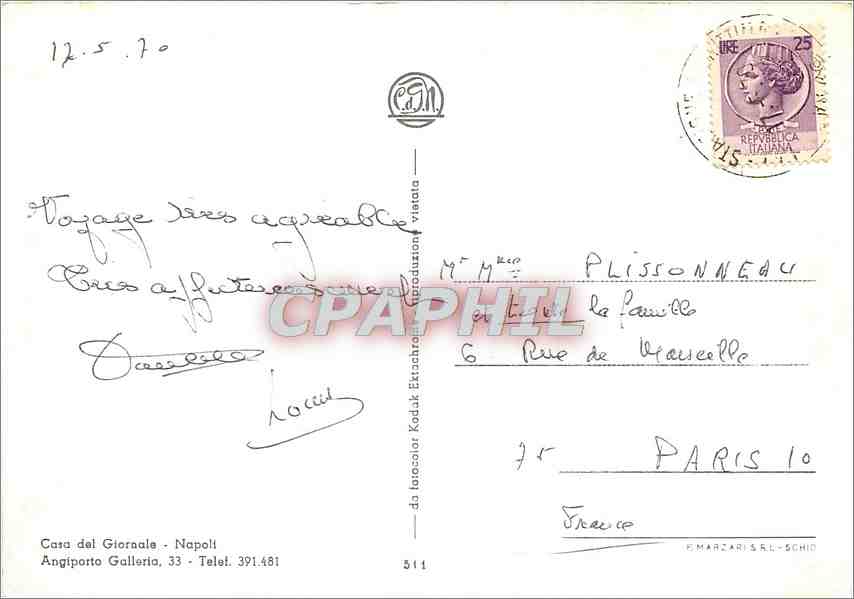 12.5.70
C.d.G.N.
LIRE 25
POSTE
REPVBBLICA
ITALIANA
Voyage très agréable
Très affectueusement
Louis
Mr Mme PLISSONNEAU
et toute la famille
6 Rue de Marseille
75 PARIS 10
France
da fotocolor Kodak Ektachrome riproduzione vietata
CPAPHIL
Casa del Giornale - Napoli
Angiporto Galleria, 33 - Telef. 391.481
511
F. MARZARI S.R.L. - SCHIO